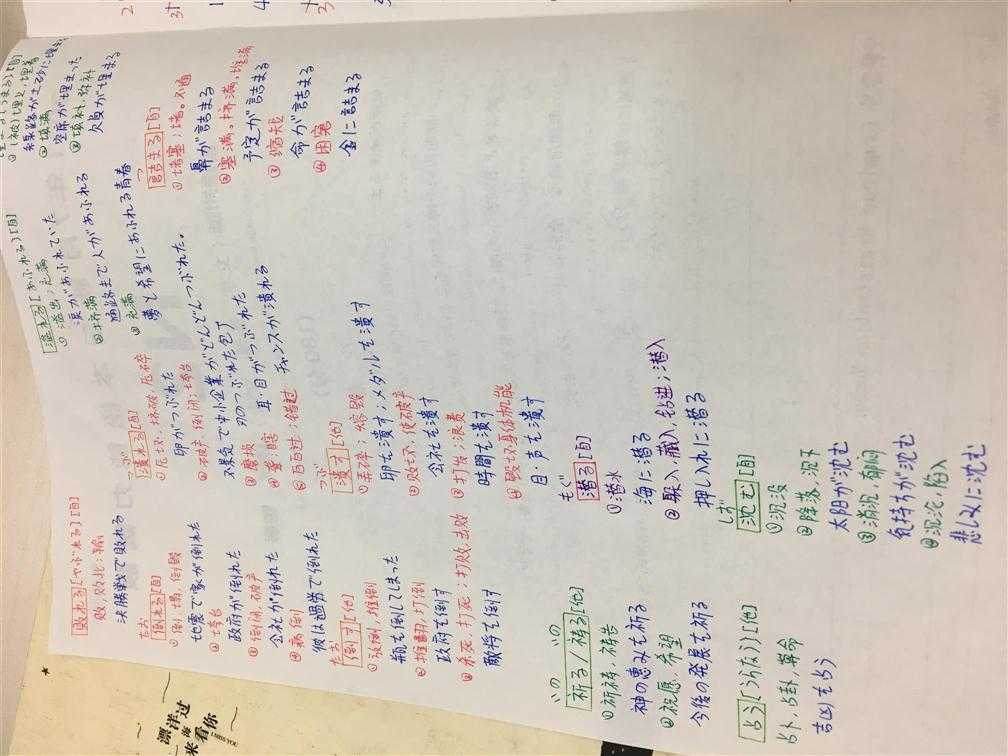 敗れる[やぶれる][自]
败,败北;输
決勝戦で敗れる
たお
倒れる[自]
①倒,塌,倒毁
地震で家が倒れた
②垮台
政府が倒れた
③倒闭,破产
会社が倒れた
④病倒
彼は過労で倒れた
たお
倒す[他]
①放倒,推倒
瓶を倒してしまった
②推翻,打倒
政府を倒す
③杀死,打死;打败,击败
敵将を倒す
いの いの
祈る/祷る[他]
①祈祷,祷告
神の恵みを祈る
②祝愿,希望
今後の発展を祈る
占う[うらなう][他]
占卜,占卦,算命
吉凶を占う
つぶ
潰れる[自]
①压坏,坏破,压碎
卵がつぶれた
②破产,倒闭;垮台
不景気で中小企業がどんどんつぶれた。
③磨损
刃のつぶれた包丁
④聋;瞎
耳・目がつぶれた
⑤白白过;错过
チャンスが潰れる
つぶ
潰す[他]
①弄碎;熔毁
卵を潰す;メダルを潰す
②败坏,使破产
会社を潰す
③打发;浪费
時間を潰す
④毁坏身体机能
目・声を潰す
もぐ
潜る[自]
①潜水
海に潜る
②躲入,藏入,钻进;潜入
押し入れに潜る
しず
沈む[自]
①沉没
②降落,沉下
太阳が沈む
③消沉,郁闷
気持ちが沈む
④沉沦,陷入
悲しみに沈む
溢れる[あふれる][自]
①溢出;充满
涙があふれていた
②挤满
通路まで人があふれる
③充满
夢と希望にあふれる青春
①(被)埋上,埋着
線路が土砂に埋まる
②填满
空席が埋まった
③填补,弥补
欠員が埋まる
つ
詰まる[自]
①堵塞;堵。不通
鼻が詰まる
②塞满。挤满,堆满
予定が詰まる
③缩短
命が詰まる
④困窘
金に詰まる
漂洋过
海
来看你
I MISS YOU